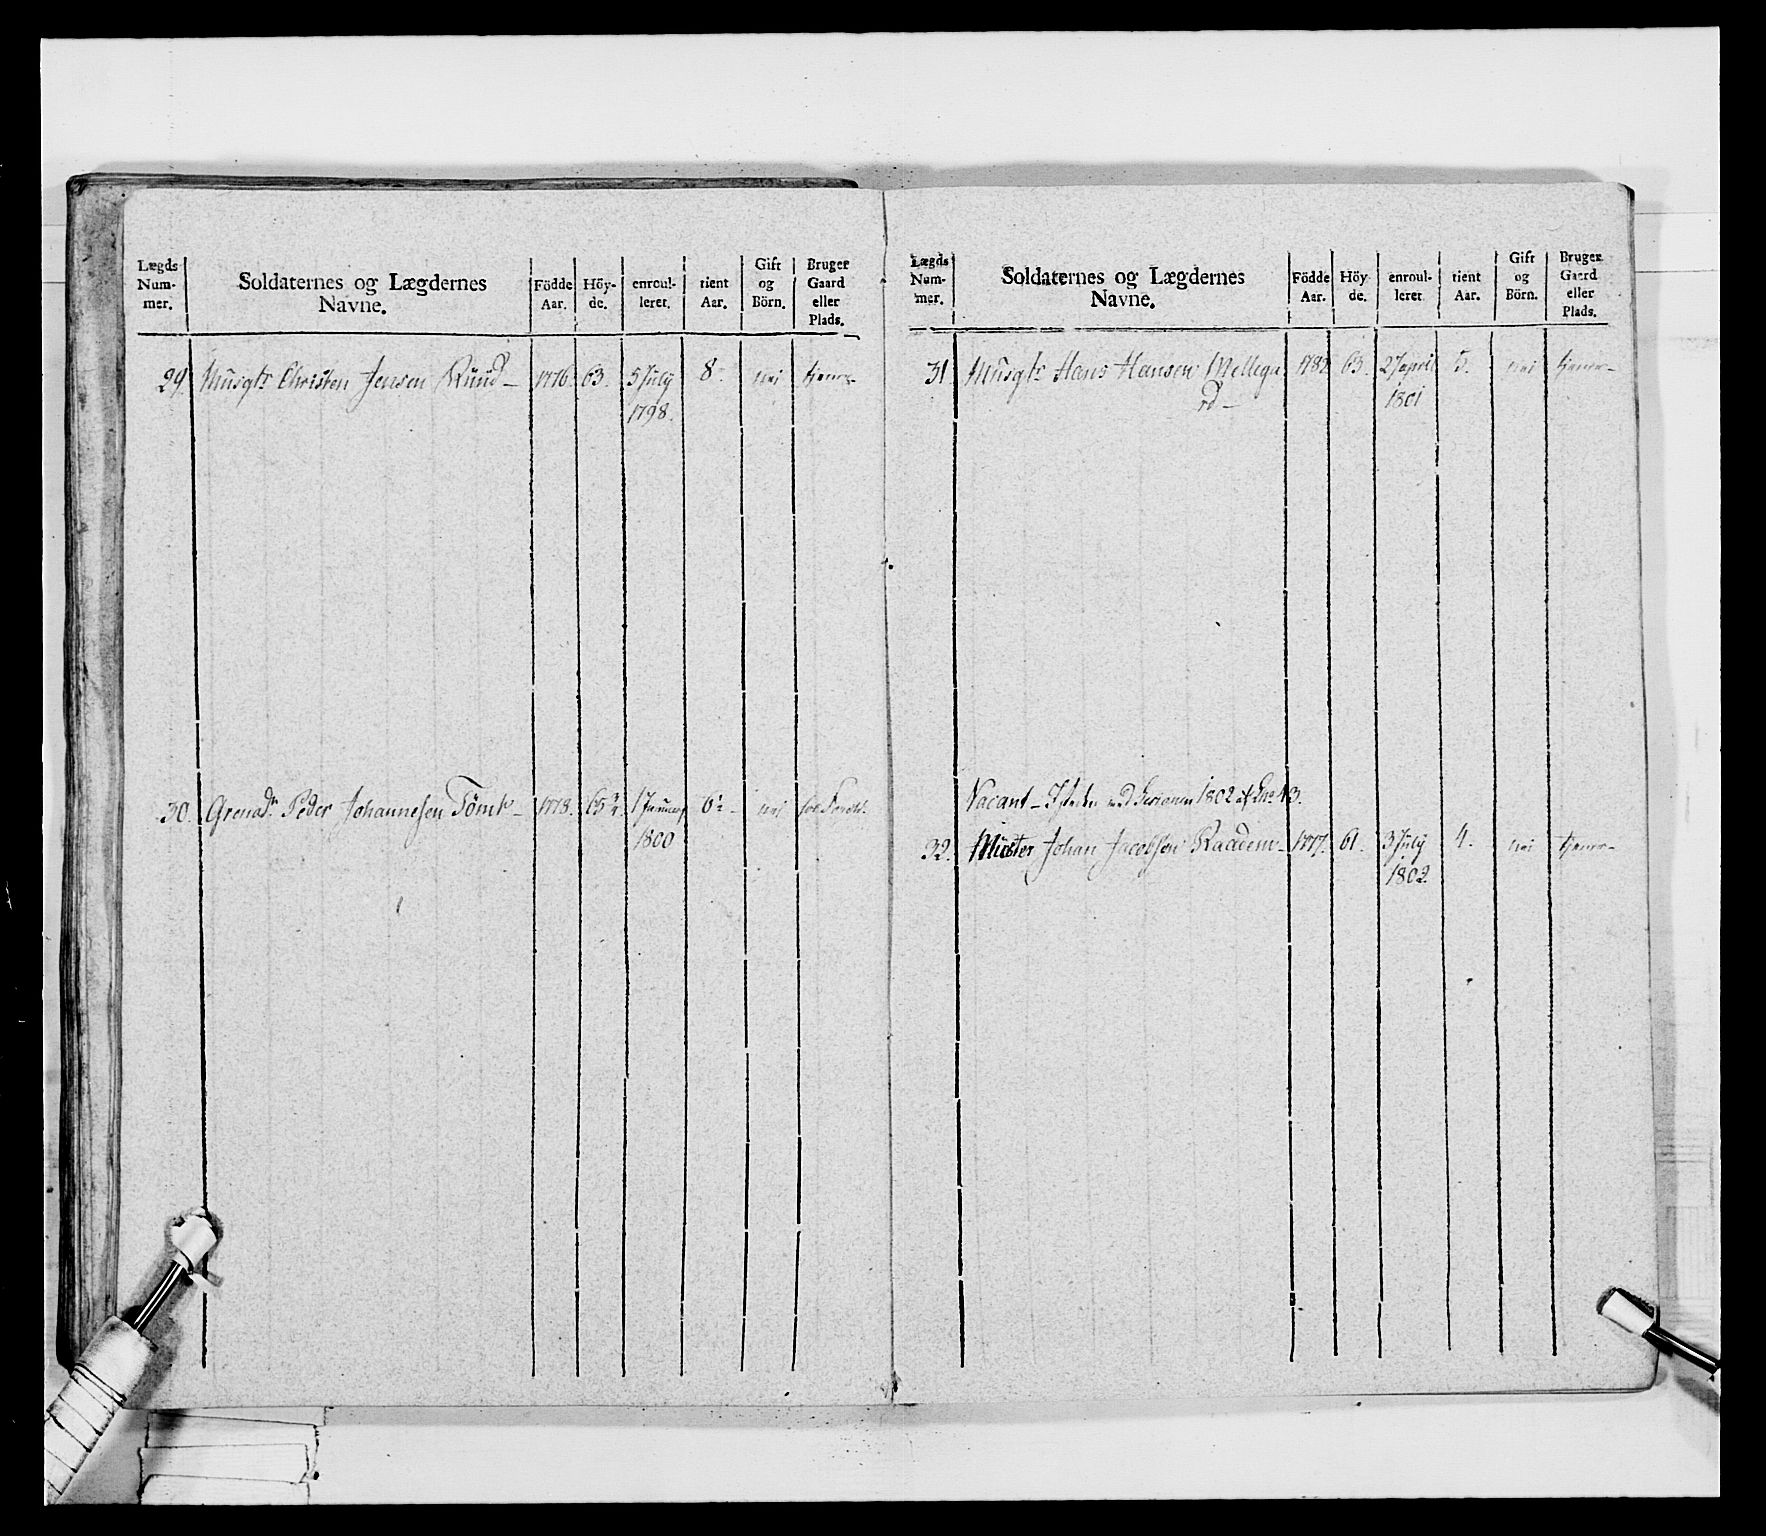 Lægds Num-mer.
Soldaternes og Lægdernes Navne.
Födde Aar.
Höy-de.
enroul-leret.
tient Aar.
Gift og Börn.
Bruger Gaard eller Plads.
29. Musqtr Christen Jensen Ruud – 1776. 63. 5 July 8. nei tjener
1798.
30. Grenadr Peder Johannesen Tömt – 1778. 65 1 Januar 6 nei
1800
Lægds Num-mer.
Soldaternes og Lægdernes Navne.
Födde Aar.
Höy-de.
enroul-leret.
tient Aar.
Gift og Börn.
Bruger Gaard eller Plads.
31. Musqtr Hans Hansen Mellega 1782 63. 27 April 5. nei tjener
rd – 1801
Vacant – 1802 No 43.
32. Johan Jacobsen Raadem – 1777. 61. 3 July 4. nei tjener
1802